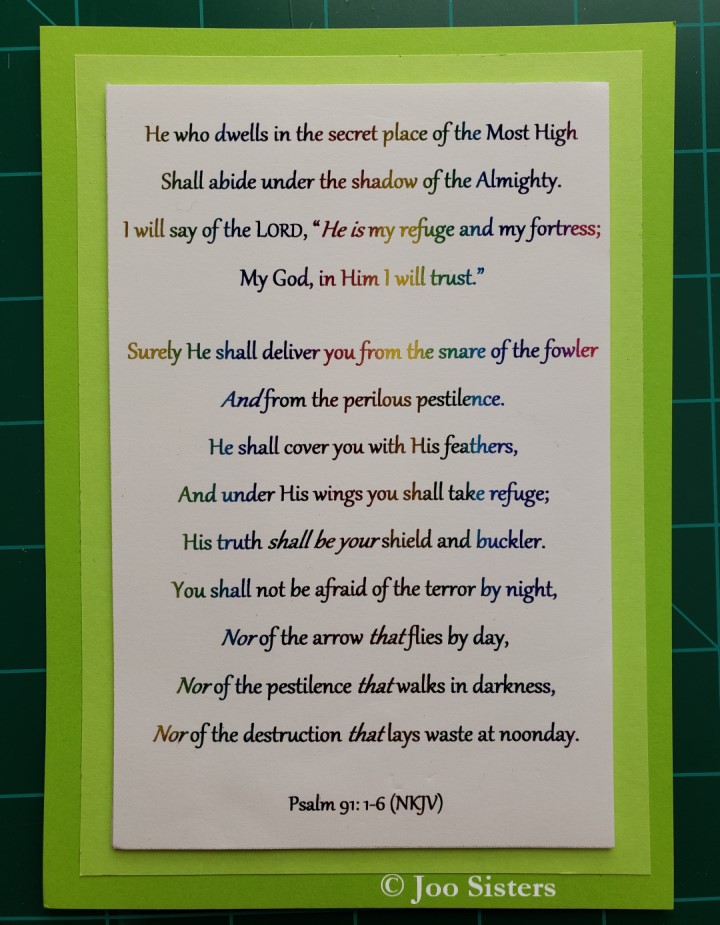 He who dwells in the secret place of the Most High
Shall abide under the shadow of the Almighty.
I will say of the LORD, “He is my refuge and my fortress;
My God, in Him I will trust.”
Surely He shall deliver you from the snare of the fowler
And from the perilous pestilence.
He shall cover you with His feathers,
And under His wings you shall take refuge;
His truth shall be your shield and buckler.
You shall not be afraid of the terror by night,
Nor of the arrow that flies by day,
Nor of the pestilence that walks in darkness,
Nor of the destruction that lays waste at noonday.
Psalm 91: 1-6 (NKJV)
© Joo Sisters